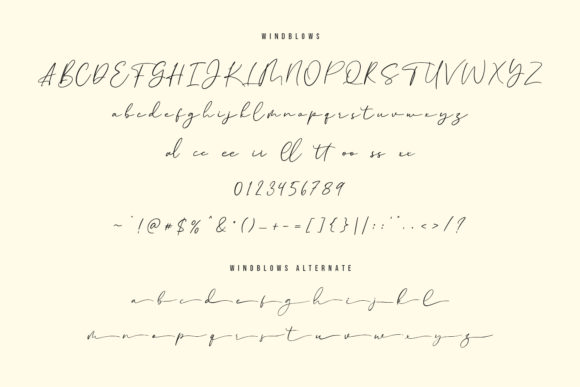 WINDBLOWS
ABCDEFGHIJKLMNOPQRSTUVWXYZ
abcdefghijklmnopqrstuvwxyz
cc ee ll tt oo ss
0123456789
~`!@#$%^&*()_+-=[]{}|/:;'"..<>/?
WINDBLOWS ALTERNATE
a b c d e f g h i j k l
m n o p q r s t u v w x y z